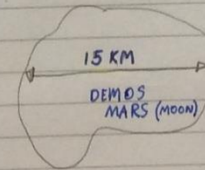 15 KM
DEMOS
MARS (MOON)